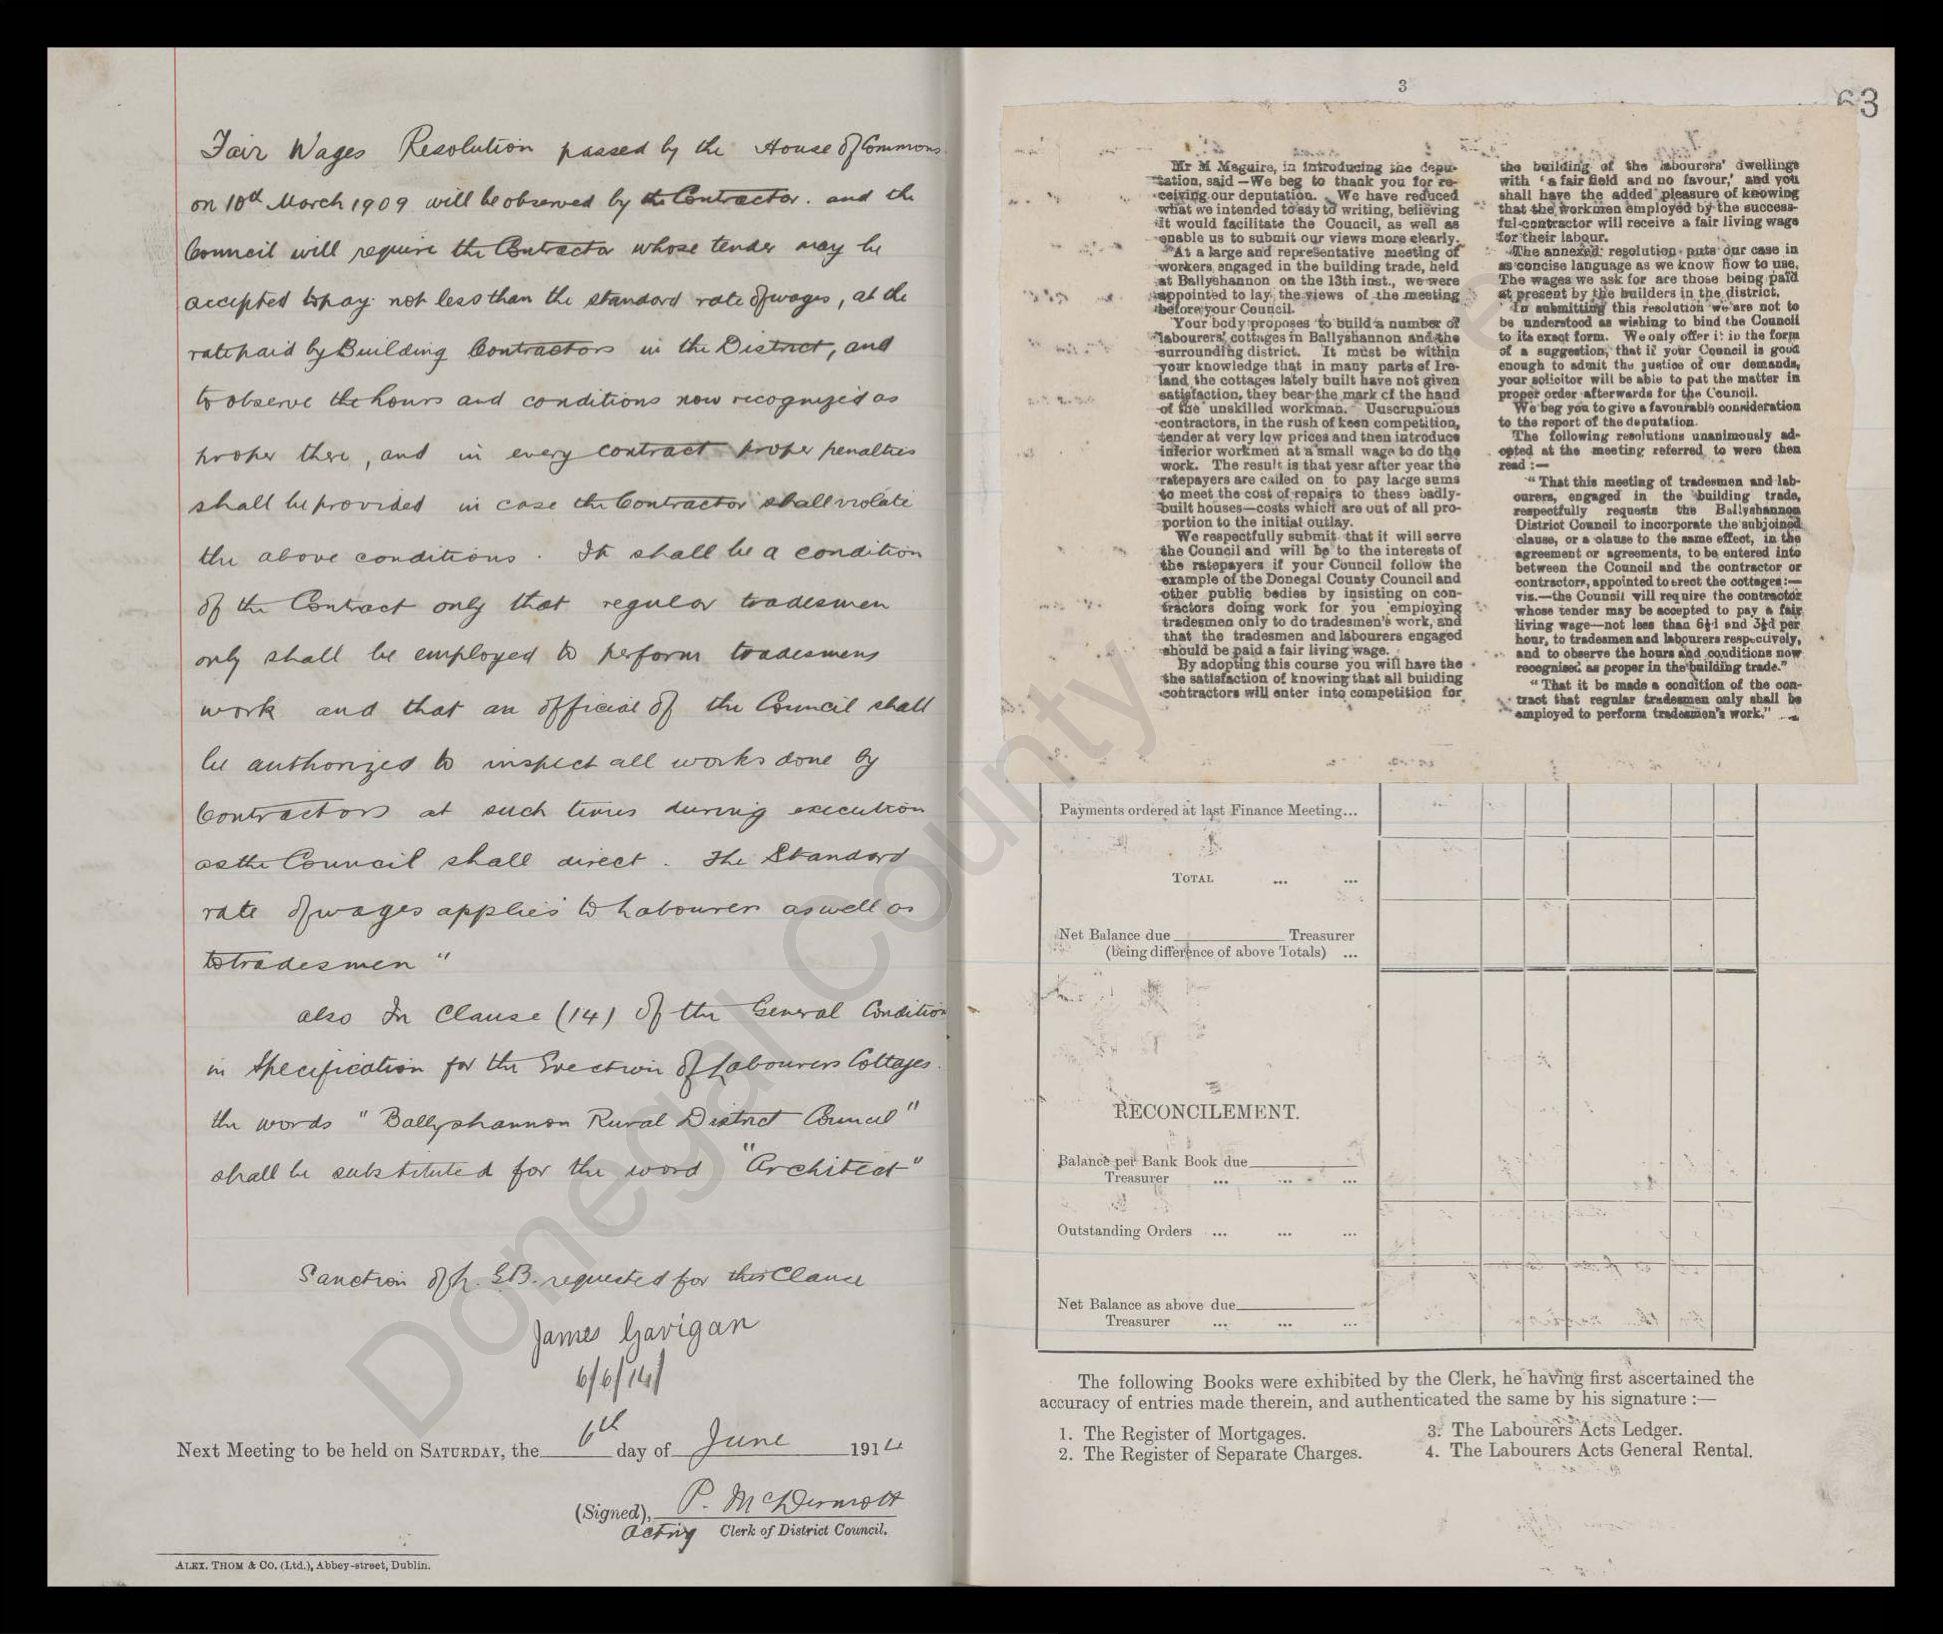 Fair Wages Resolution passed by the House of Commons
on 10th March 1909 will be observed by the Contractor. and the
Council will require the Contractor whose tender may be
accepted to pay not less than the standard rate of wages, at the
rate paid by Building Contractors in the District, and
to observe the hours and conditions now recognized as
proper there, and in every contract proper penalties
shall be provided in case the Contractor shall violate
the above conditions. It shall be a condition
of the Contract only that regular tradesmen
only shall be employed to perform tradesmens
work and that an official of the Council shall
be authorized to inspect all works done by
Contractors at such times during execution
as the Council shall direct. The Standard
rate of wages applies to Labourers as well as
to tradesmen "
also In Clause (14) of the General Condition
in Specification for the Erection of Labourers Cottages.
the words " Ballyshannon Rural District Council "
shall be substituted for the word "Architect"
Sanction of L. G.B. requested for this Clause
James Gavigan
6/6/14
Next Meeting to be held on SATURDAY, the 6th day of June 1914
(Signed), P. McDermott
Acting Clerk of District Council.
ALEX. THOM & CO. (Ltd.), Abbey-street, Dublin.
3
63
Mr M Maguire, in introducing the depu-
tation, said—We beg to thank you for re-
ceiving our deputation. We have reduced
what we intended to say to writing, believing
it would facilitate the Council, as well as
enable us to submit our views more clearly.
"At a large and representative meeting of
workers engaged in the building trade, held
at Ballyshannon on the 13th inst., we were
appointed to lay the views of the meeting
before your Council.
Your body proposes to build a number of
labourers' cottages in Ballyshannon and the
surrounding district. It must be within
your knowledge that in many parts of Ire-
land the cottages lately built have not given
satisfaction, they bear the mark of the hand
of the unskilled workman. Unscrupulous
contractors, in the rush of keen competition,
tender at very low prices and then introduce
inferior workmen at a small wage to do the
work. The result is that year after year the
ratepayers are called on to pay large sums
to meet the cost of repairs to these badly-
built houses—costs which are out of all pro-
portion to the initial outlay.
We respectfully submit that it will serve
the Council and will be to the interests of
the ratepayers if your Council follow the
example of the Donegal County Council and
other public bodies by insisting on con-
tractors doing work for you employing
tradesmen only to do tradesmen's work, and
that the tradesmen and labourers engaged
should be paid a fair living wage.
By adopting this course you will have the
the satisfaction of knowing that all building
contractors will enter into competition for
the building of the labourers' dwellings
with 'a fair field and no favour,' and you
shall have the added pleasure of knowing
that the workmen employed by the success-
ful contractor will receive a fair living wage
for their labour.
The annexed resolution puts our case in
as concise language as we know how to use.
The wages we ask for are those being paid
at present by the builders in the district.
In submitting this resolution we are not to
be understood as wishing to bind the Council
to its exact form. We only offer it in the form
of a suggestion, that if your Council is good
enough to admit the justice of our demands,
your solicitor will be able to put the matter in
proper order afterwards for the Council.
We beg you to give a favourable consideration
to the report of the deputation.
The following resolutions unanimously ad-
opted at the meeting referred to were then
read :—
"That this meeting of tradesmen and lab-
ourers, engaged in the building trade,
respectfully requests the Ballyshannon
District Council to incorporate the subjoined
clause, or a clause to the same effect, in the
agreement or agreements, to be entered into
between the Council and the contractor or
contractors, appointed to erect the cottages:—
viz.—the Council will require the contractor
whose tender may be accepted to pay a fair
living wage—not less than 6½d and 3½d per
hour, to tradesmen and labourers respectively,
and to observe the hours and conditions now
recognised as proper in the building trade."
"That it be made a condition of the con-
tract that regular tradesmen only shall be
employed to perform tradesmen's work."
Payments ordered at last Finance Meeting...
TOTAL ... ...
Net Balance due Treasurer
(being difference of above Totals) ...
RECONCILEMENT.
Balance per Bank Book due
Treasurer ... ... ...
Outstanding Orders ... ... ...
Net Balance as above due
Treasurer ... ... ...
The following Books were exhibited by the Clerk, he having first ascertained the
accuracy of entries made therein, and authenticated the same by his signature :—
1. The Register of Mortgages.
2. The Register of Separate Charges.
3. The Labourers Acts Ledger.
4. The Labourers Acts General Rental.
Donegal County